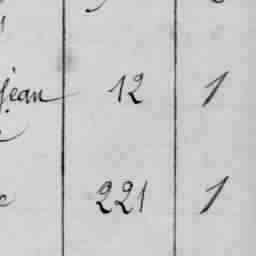 jean 12 1
221 1